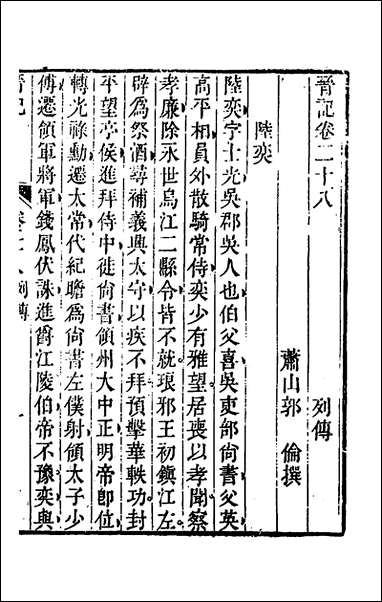 晉記卷二十八
列傳
蕭山郭　倫撰
陸奕
陸奕字士光吳郡吳人也伯父喜吳吏部尙書父英
高平相員外散騎常侍奕少有雅望居喪以孝聞察
孝廉除永世烏江二縣令皆不就琅邪王初鎭江左
辟爲祭酒尋補義興太守以疾不拜預擊華軼功封
平望亭侯進拜侍中徙尙書領州大中正明帝卽位
轉光祿勳遷太常代紀瞻爲尙書左僕射領太子少
傅遷領軍將軍錢鳳伏誅進爵江陵伯帝不豫奕與
晉記
卷二十八列傳
一